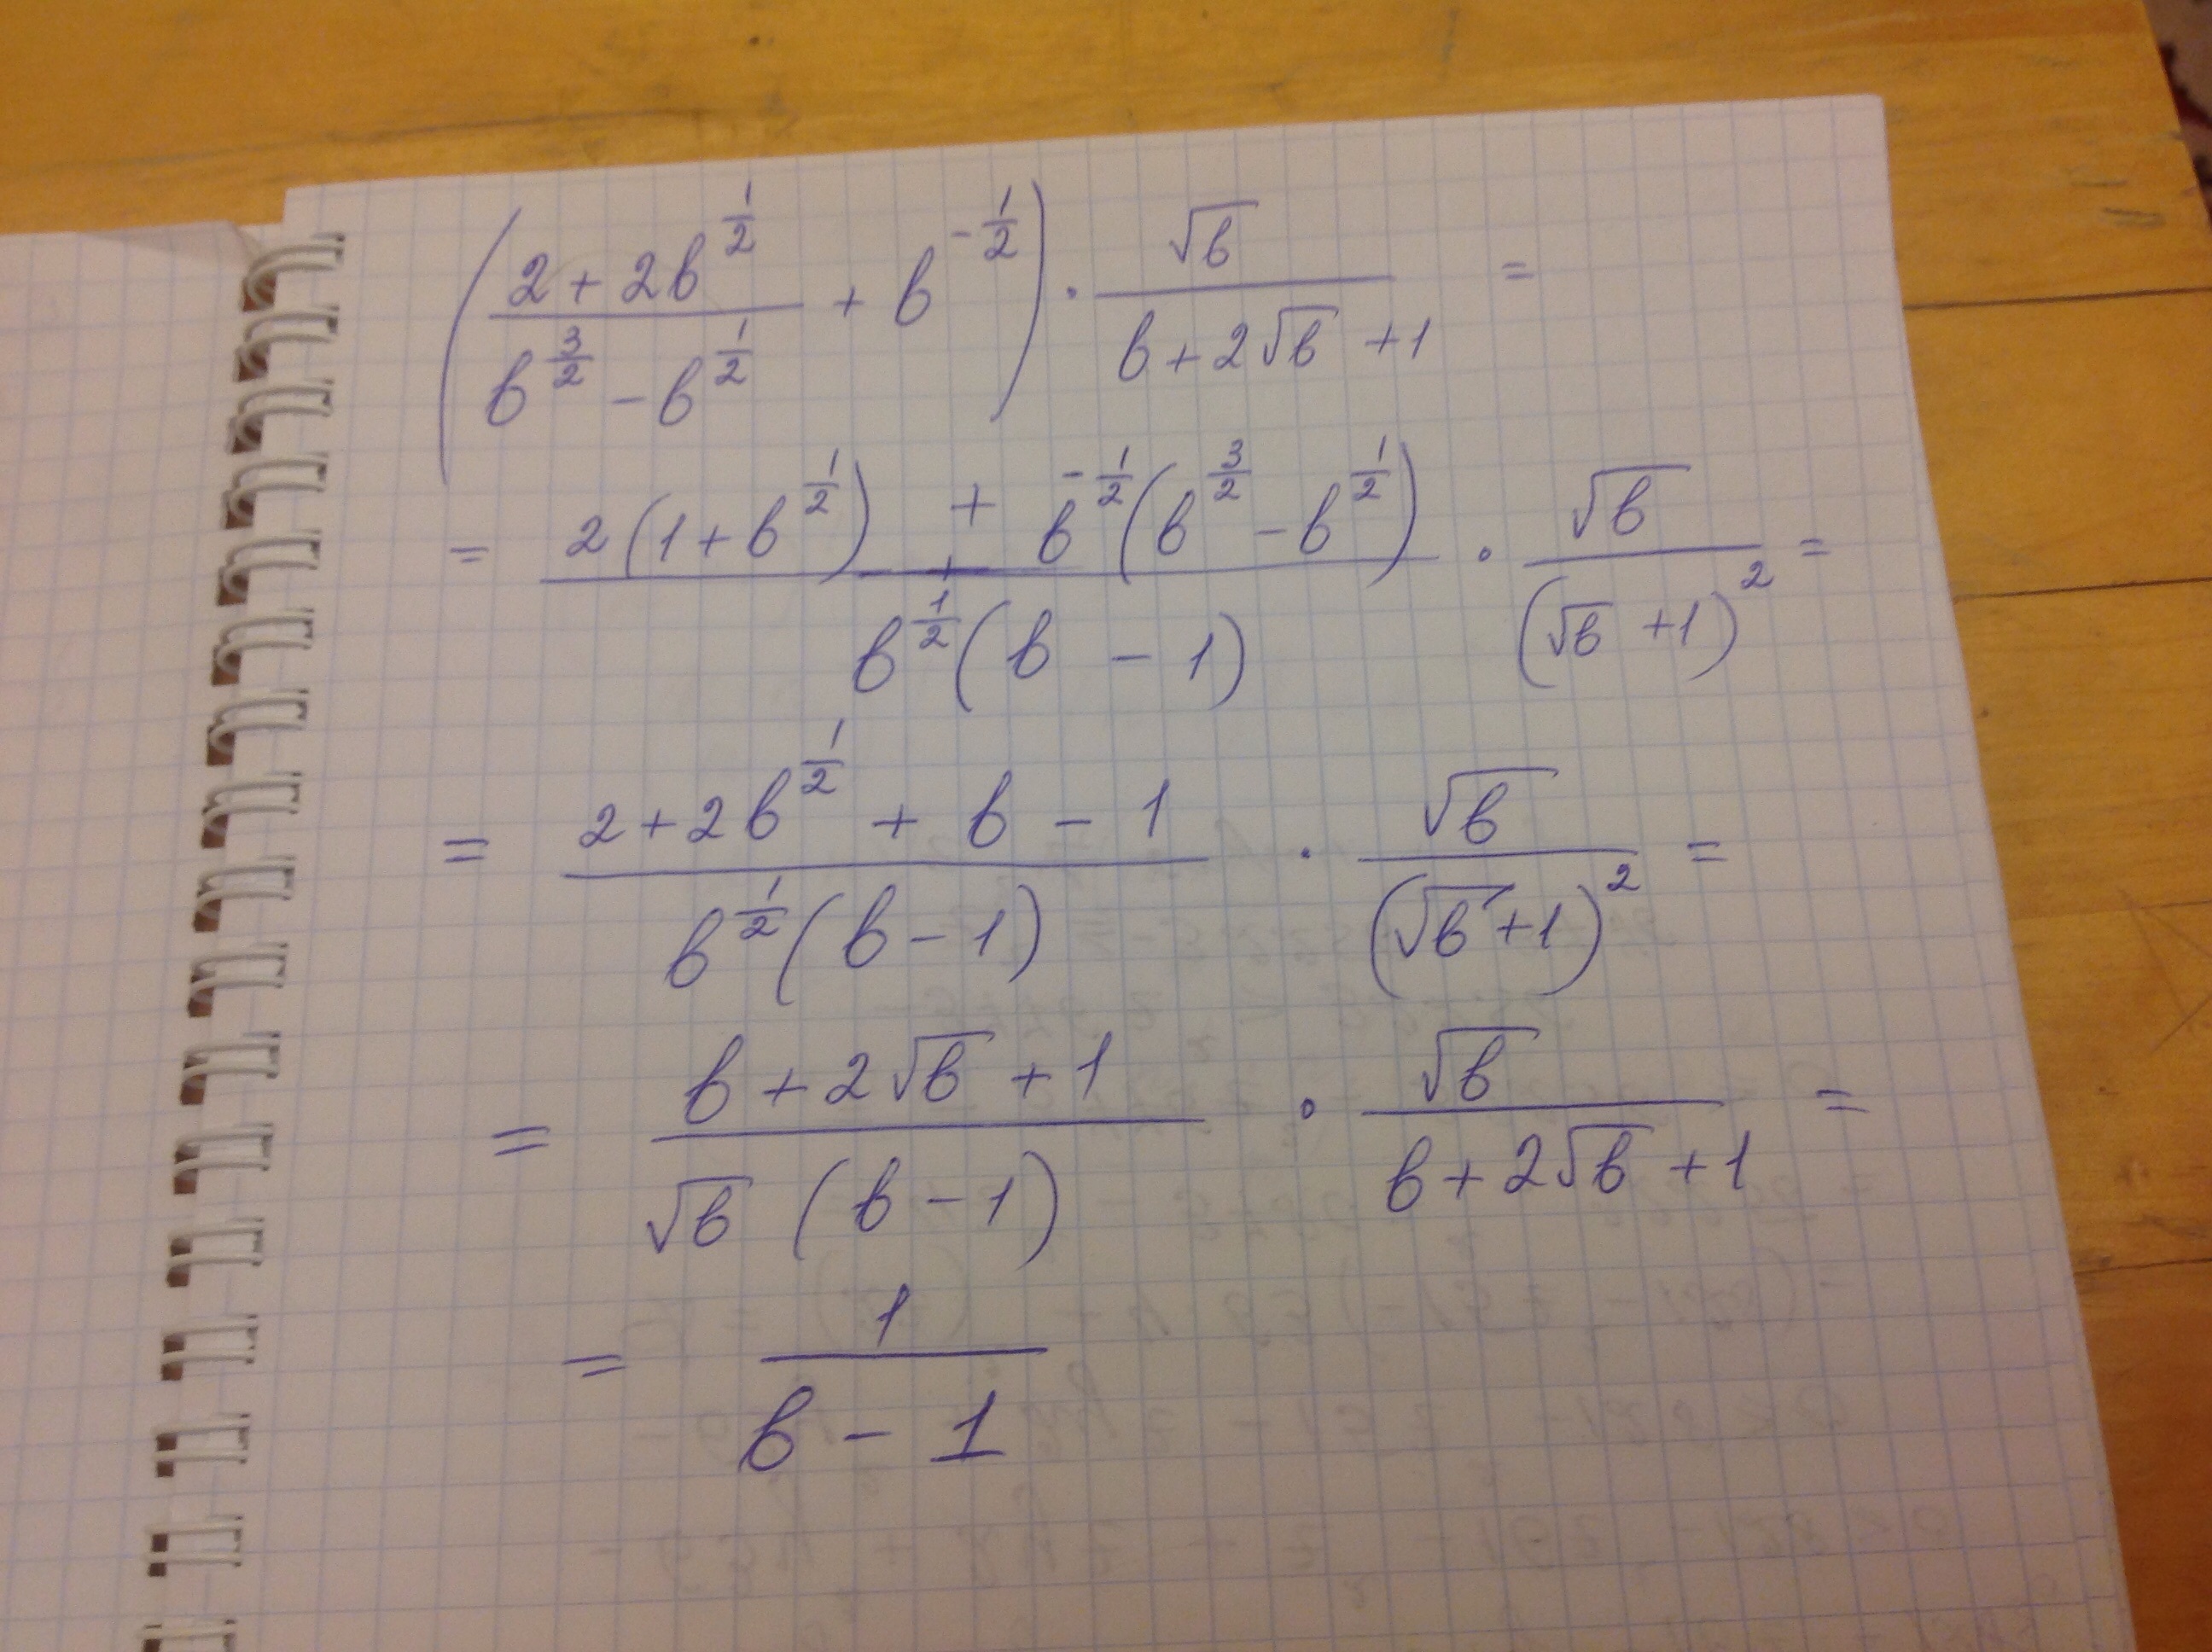 (2 + 2b^(1/2) / b^(3/2) − b^(1/2) + b^(−1/2)) · √b / b + 2√b + 1 =
= 2(1 + b^(1/2)) + b^(−1/2)(b^(3/2) − b^(1/2)) / b^(1/2)(b − 1) · √b / (√b + 1)² =
= 2 + 2b^(1/2) + b − 1 / b^(1/2)(b − 1) · √b / (√b + 1)² =
= b + 2√b + 1 / √b (b − 1) · √b / b + 2√b + 1 =
= 1 / b − 1